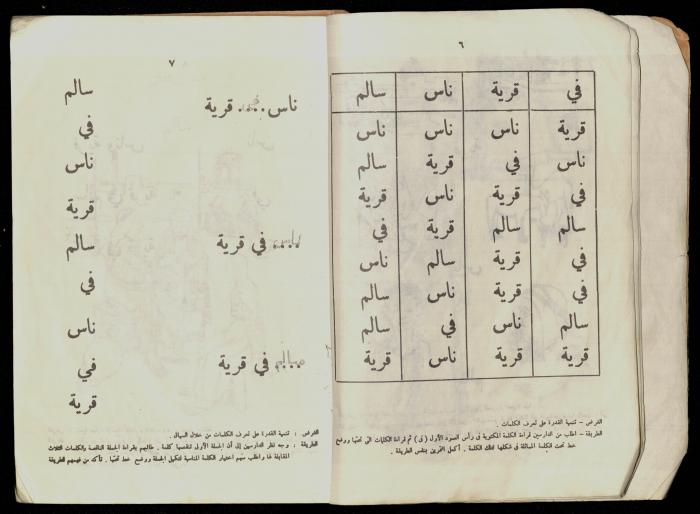 ٦
في قرية ناس سالم
قرية ناس ناس ناس
ناس في قرية سالم
في قرية ناس قرية
سالم سالم قرية في
في قرية سالم ناس
في قرية ناس سالم
سالم ناس في سالم
قرية قرية ناس قرية
الغرض – تنمية القدرة على تعرف الكلمات .
الطريقة – اطلب من الدارسين قراءة الكلمة المكتوبة في رأس العمود الأول ( في ) ثم قراءة الكلمات التي تحتها ووضع
خط تحت الكلمة المماثلة في شكلها لتلك الكلمة . أكمل التمرين بنفس الطريقة .
٧
ناس .في... قرية
ناس .... في قرية
سالم ... في قرية
سالم
في
ناس
قرية
سالم
في
ناس
في
قرية
الغرض : تنمية القدرة على تعرف الكلمات من خلال السياق .
الطريقة : وجه نظر الدارسين إلى أن الجملة الأولى تنقصها كلمة . طالبهم بقراءة الجملة الناقصة والكلمات الثلاث
المقابلة لها واطلب منهم اختيار الكلمة المناسبة لتكميل الجملة ووضع خط تحتها . تأكد من فهمهم الطريقة